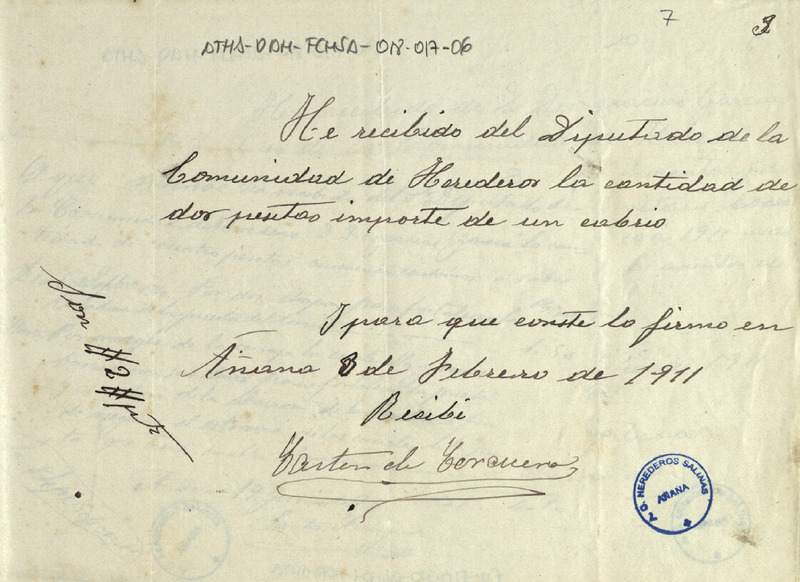 7
ATHA-DAH-FCHSA-018-017-06
He recibido del Diputado de la
Comunidad de Herederos la cantidad de
dos pesetas importe de un cabrio
Y para que conste lo firmo en
Añana 8 de Febrero de 1911
Recibi
de
Son #2# pts
HEREDEROS SALINAS
AÑANA